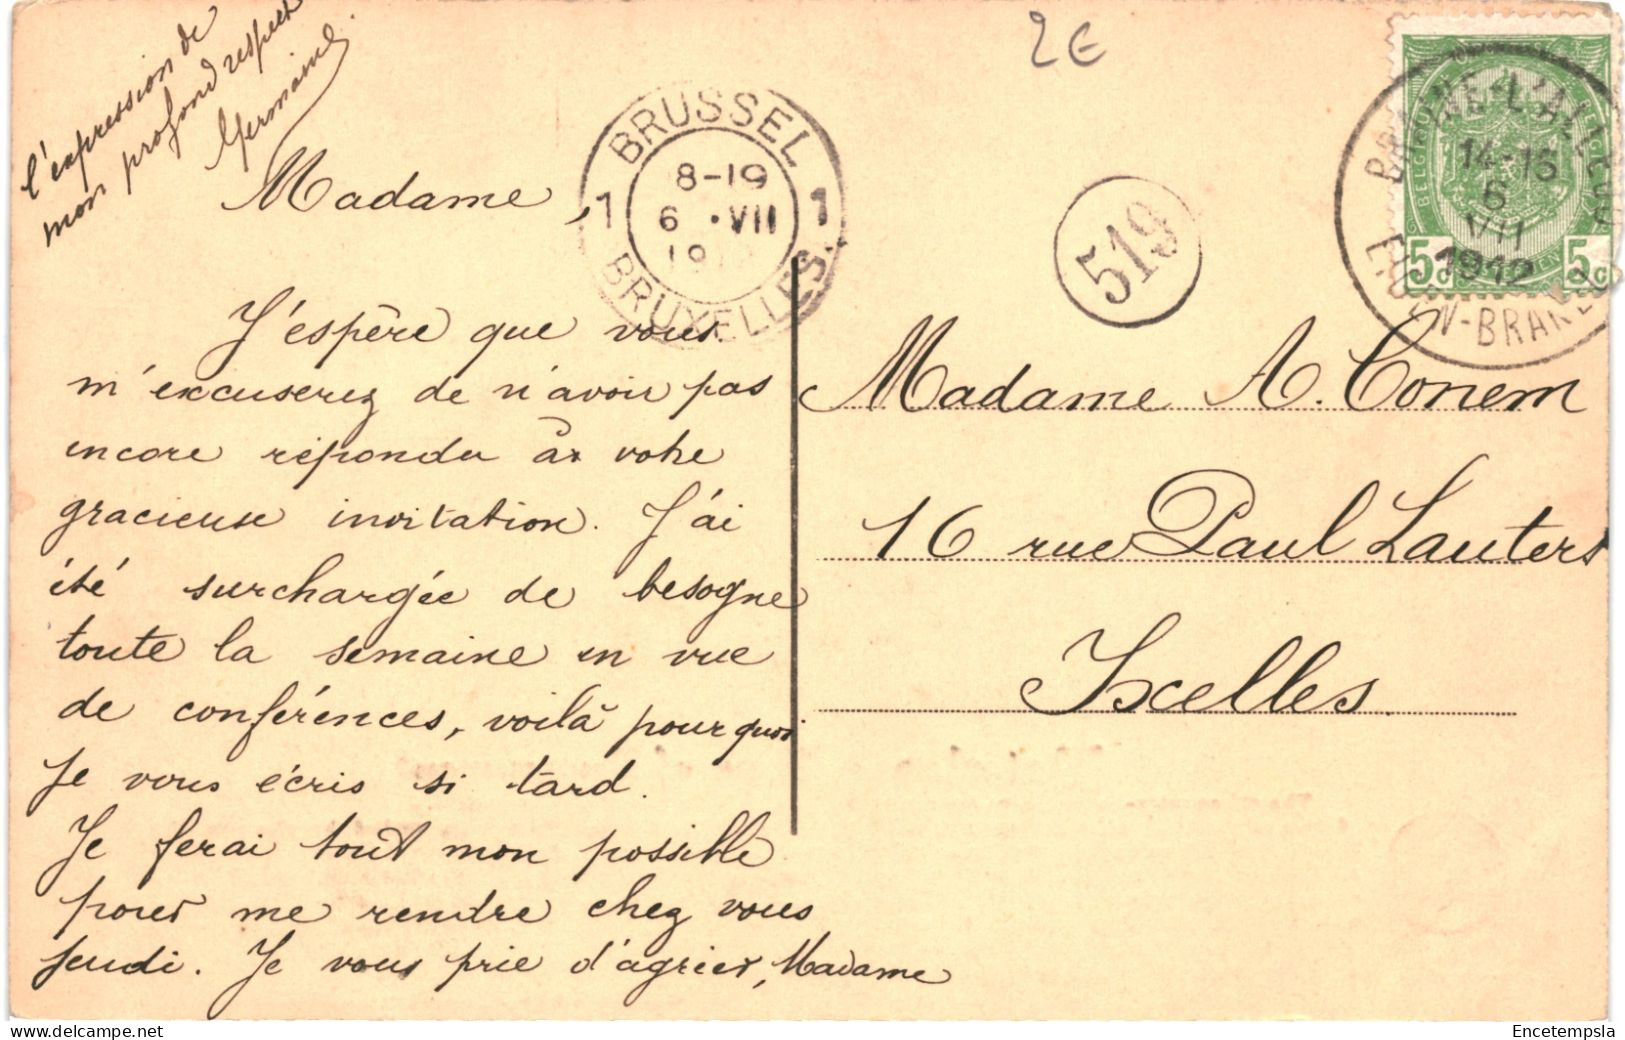 2€
l'expression de
mon profond respect
Germaine.
BRUSSEL
1 8-19 1
6 • VII
BRUXELLES
519
BRAINE-L'ALLEUD
14-15
6
VII
1912
5c 5c
Madame,
J'espère que vous
m'excuserez de n'avoir pas
encore répondu à votre
gracieuse invitation. J'ai
été surchargée de besogne
toute la semaine en vue
de conférences, voilà pourquoi
Je vous écris si tard.
Je ferai tout mon possible
pour me rendre chez vous
Jeudi. Je vous prie d'agréer, Madame
Madame A. Conem
16 rue Paul Lauters
Ixelles.
Encetempsla
https://www.delcampe.net